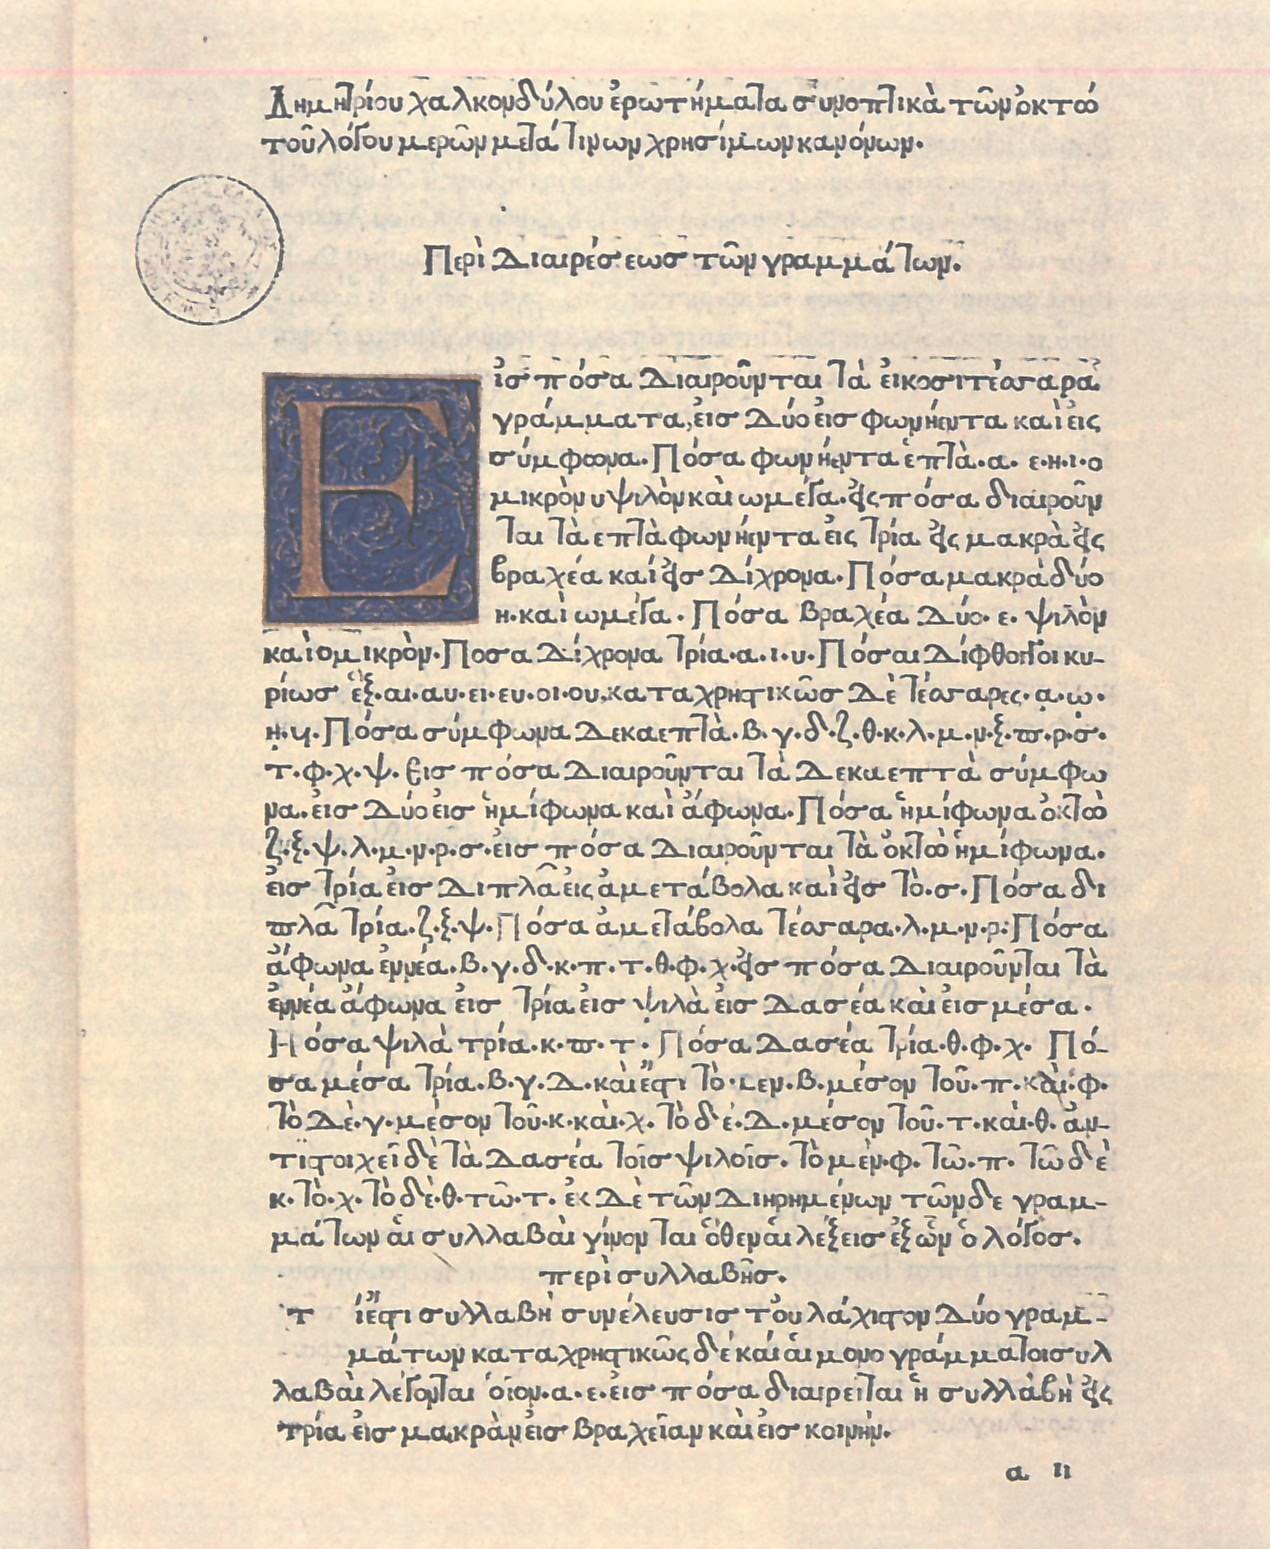 Δημητρίου χαλκονδύλου ἐρωτήματα συνοπτικὰ τῶν ὀκτὼ
τοῦ λόγου μερῶν μετά τινων χρησίμων κανόνων.
Περὶ Διαιρέσεως τῶν γραμμάτων.
Εἰς πόσα Διαιροῦνται τὰ εἰκοσιτέσσαρα
γράμματα, εἰς Δύο εἰς φωνήεντα καὶ εἰς
σύμφωνα. Πόσα φωνήεντα ἑπτὰ. α. ε. η. ι. ο
μικρὸν υ ψιλὸν καὶ ω μέγα. εἰς πόσα διαιροῦν
ται τὰ επτὰ φωνήεντα εἰς τρία εἰς μακρὰ εἰς
βραχέα καὶ εἰς Δίχρονα. Πόσα μακρὰ δύο
η. καὶ ω μέγα. Πόσα βραχέα Δύο. ε. ψιλὸν
καὶ ο μικρὸν. Ποσα Δίχρονα τρία. α. ι. υ. Πόσαι Δίφθογγοι κυ-
ρίως ἓξ. αι. αυ. ει. ευ. οι. ου, καταχρηστικῶς Δὲ τέσσαρες. ᾳ. ῳ.
ῃ. υι. Πόσα σύμφωνα Δεκαεπτὰ. β. γ. δ. ζ. θ. κ. λ. μ. ν. ξ. π. ρ. σ.
τ. φ. χ. ψ. Εις πόσα Διαιροῦνται τὰ Δεκαεπτὰ σύμφω
να. εἰς Δύο εἰς ἡμίφωνα καὶ ἄφωνα. Πόσα ἡμίφωνα ὀκτὼ
ζ. ξ. ψ. λ. μ. ν. ρ. σ. εἰς πόσα Διαιροῦνται τὰ ὀκτὼ ἡμίφωνα.
εἰς τρία εἰς Διπλᾶ εἰς ἀμετάβολα καὶ εἰς τὸ. σ. Πόσα δι
πλᾶ τρία. ζ. ξ. ψ. Πόσα ἀμετάβολα τέσσαρα. λ. μ. ν. ρ. Πόσα
ἄφωνα ἐννέα. β. γ. δ. κ. π. τ. θ. φ. χ. εἰς πόσα Διαιροῦνται τὰ
ἐννέα ἄφωνα εἰς τρία εἰς ψιλὰ εἰς Δασέα καὶ εἰς μέσα.
Πόσα ψιλὰ τρία. κ. π. τ. Πόσα Δασέα τρία. θ. φ. χ. Πό-
σα μέσα τρία. β. γ. Δ. καὶ ἔστι τὸ μεν. β. μέσον τοῦ. π. καὶ. φ.
τὸ Δὲ. γ. μέσον τοῦ. κ. καὶ. χ. τὸ δὲ. Δ. μέσον τοῦ. τ. καὶ. θ. ἀν-
τιστοιχεῖ δὲ τὰ Δασέα τοῖς ψιλοῖς. τὸ μὲν. φ. τῶ. π. τῶ δὲ
κ. τὸ. χ. τὸ δὲ. θ. τῶ. τ. ἐκ Δὲ τῶν Διηρημένων τῶνδε γραμ-
μάτων αἱ συλλαβαὶ γίνονται ὅθεν αἱ λέξεις ἐξ ὧν ὁ λόγος.
περὶ συλλαβῆς.
τ ί ἔστι συλλαβὴ συνέλευσις τοὐλάχιστον Δύο γραμ-
μάτων καταχρηστικῶς δέ καί αἱ μονογράμματοι συλ
λαβαὶ λέγονται οἷον. α. ε. εἰς πόσα διαιρεῖται ἡ συλλαβὴ εἰς
τρία εἰς μακρὰν εἰς βραχεῖαν καὶ εἰς κοινὴν.
α ιι